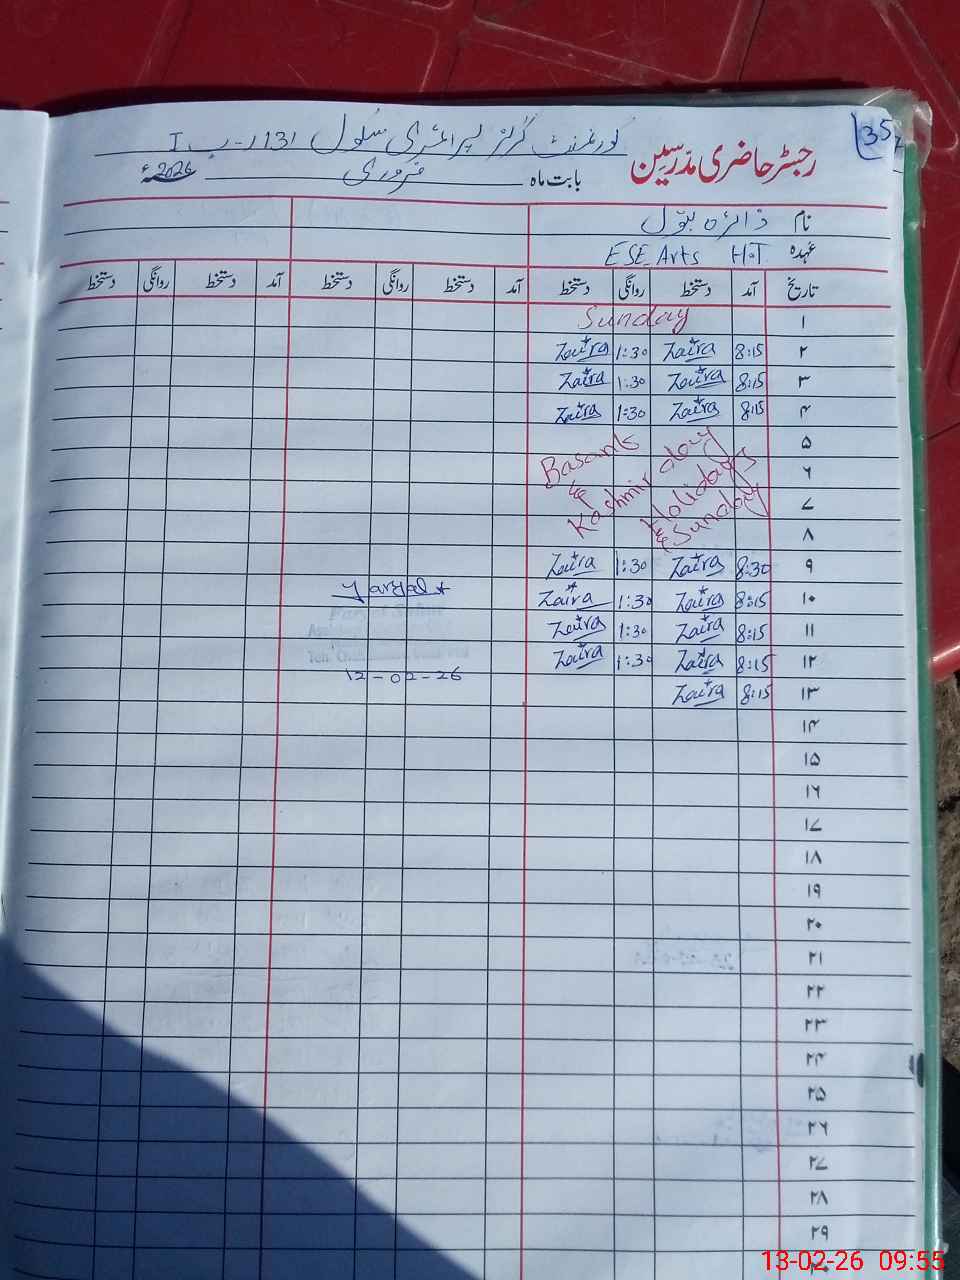 35
رجسٹر حاضری مدرسین گورنمنٹ گرلز پرائمری سکول 131 ر-ب I
بابت ماہ فروری 2026ء
نام ذائرہ بتول
عہدہ ESE Arts H.T
تاریخ آمد دستخط روانگی دستخط آمد دستخط روانگی دستخط آمد دستخط روانگی دستخط
۱ Sunday
۲ 8:15 Zaira 1:30 Zaira
۳ 8:15 Zaira 1:30 Zaira
۴ 8:15 Zaira 1:30 Zaira
۵
۶
۷
۸
Basant
&
Kashmir day
Holidays
& Sunday
۹ 8:30 Zaira 1:30 Zaira
۱۰ 8:15 Zaira 1:30 Zaira
۱۱ 8:15 Zaira 1:30 Zaira
۱۲ 8:15 Zaira 1:30 Zaira
۱۳ 8:15 Zaira
12-02-26
۱۴
۱۵
۱۶
۱۷
۱۸
۱۹
۲۰
۲۱
۲۲
۲۳
۲۴
۲۵
۲۶
۲۷
۲۸
۲۹
13-02-26 09:55